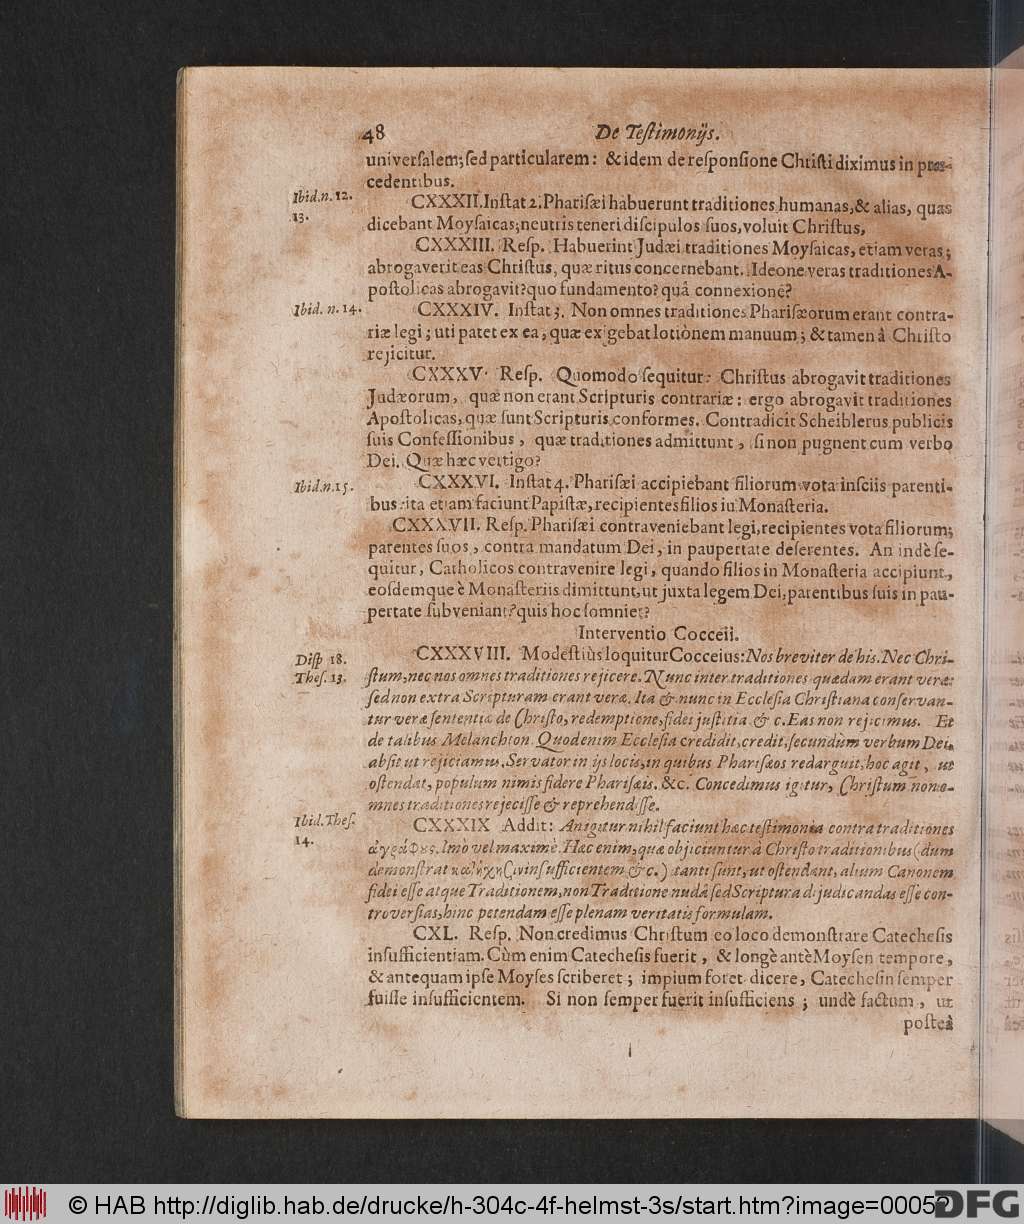 48 De Teſtimonijs.
univerſalem; ſed particularem: & idem de reſponſione Chriſti diximus in præ-
cedentibus.
Ibid. n. 12.
13.
CXXXII. Inſtat 2. Phariſæi habuerunt traditiones humanas, & alias, quas
dicebant Moyſaicas; neutris teneri diſcipulos ſuos, voluit Chriſtus,
CXXXIII. Reſp. Habuerint Judæi traditiones Moyſaicas, etiam veras;
abrogaverit eas Chriſtus, quæ ritus concernebant. Ideone veras traditiones A-
poſtolicas abrogavit? quo fundamento? quâ connexione?
Ibid. n. 14.
CXXXIV. Inſtat 3. Non omnes traditiones Phariſæorum erant contra-
riæ legi; uti patet ex ea, quæ exigebat lotionem manuum; & tamen â Chriſto
rejicitur.
CXXXV. Reſp. Quomodo ſequitur: Chriſtus abrogavit traditiones
Judæorum, quæ non erant Scripturis contrariæ: ergo abrogavit traditiones
Apoſtolicas, quæ ſunt Scripturis conformes. Contradicit Scheiblerus publicis
ſuis Confeſſionibus, quæ traditiones admittunt, ſi non pugnent cum verbo
Dei. Quæ hæc vertigo?
Ibid. n. 15.
CXXXVI. Inſtat 4. Phariſæi accipiebant filiorum vota inſciis parenti-
bus: ita etiam faciunt Papiſtæ, recipientes filios iu Monaſteria.
CXXXVII. Reſp. Phariſæi contraveniebant legi, recipientes vota filiorum;
parentes ſuos, contra mandatum Dei, in paupertate deſerentes. An indè ſe-
quitur, Catholicos contravenire legi, quando filios in Monaſteria accipiunt,
eoſdemque è Monaſteriis dimittunt, ut juxta legem Dei, parentibus ſuis in pau-
pertate ſubveniant? quis hoc ſomniet?
Interventio Cocceii.
Diſp 18.
Theſ. 13.
CXXXVIII. Modeſtiùs loquitur Cocceius: Nos breviter de his. Nec Chri-
ſtum, nec nos omnes traditiones rejicere. Nunc inter traditiones quædam erant veræ:
ſed non extra Scripturam erant veræ. Ita & nunc in Eccleſia Chriſtiana conſervan-
tur veræ ſententiæ de Chriſto, redemptione, fidei juſtitia & c. Eas non rejicimus. Et
de talibus Melanchton. Quod enim Eccleſia credidit, credit, ſecundùm verbum Dei,
abſit ut rejiciamus. Servator in ijs locis, in quibus Phariſæos redarguit, hoc agit, ut
oſtendat, populum nimis fidere Phariſæis. &c. Concedimus igitur, Chriſtum non o-
mnes traditiones rejeciſſe & reprehendiſſe.
Ibid. Theſ.
14.
CXXXIX Addit: An igitur nihil faciunt hæc teſtimonia contra traditiones
ἀγράφους. Imo vel maximè. Hæc enim, quæ objiciuntur à Chriſto traditionibus (dum
demonſtrat inſufficientem & c.) tanti ſunt, ut oſtendant, alium Canonem
fidei eſſe atque Traditionem, non Traditione nudâ ſed Scriptura dijudicandas eſſe con-
troverſias, hinc petendam eſſe plenam veritatis formulam.
CXL. Reſp. Non credimus Chriſtum eo loco demonſtrare Catecheſis
inſufficientiam. Cùm enim Catecheſis fuerit, & longè antè Moyſen tempore,
& antequam ipſe Moyſes ſcriberet; impium foret dicere, Catecheſin ſemper
fuiſſe inſufficientem. Si non ſemper fuerit inſufficiens; undè factum, ut
poſteà
© HAB http://diglib.hab.de/drucke/h-304c-4f-helmst-3s/start.htm?image=00052
DFG